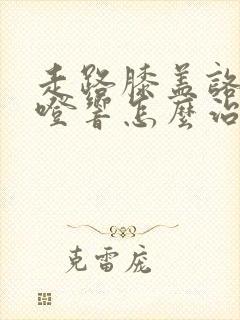 走路膝盖咯
噔響怎麼治
克雷庞